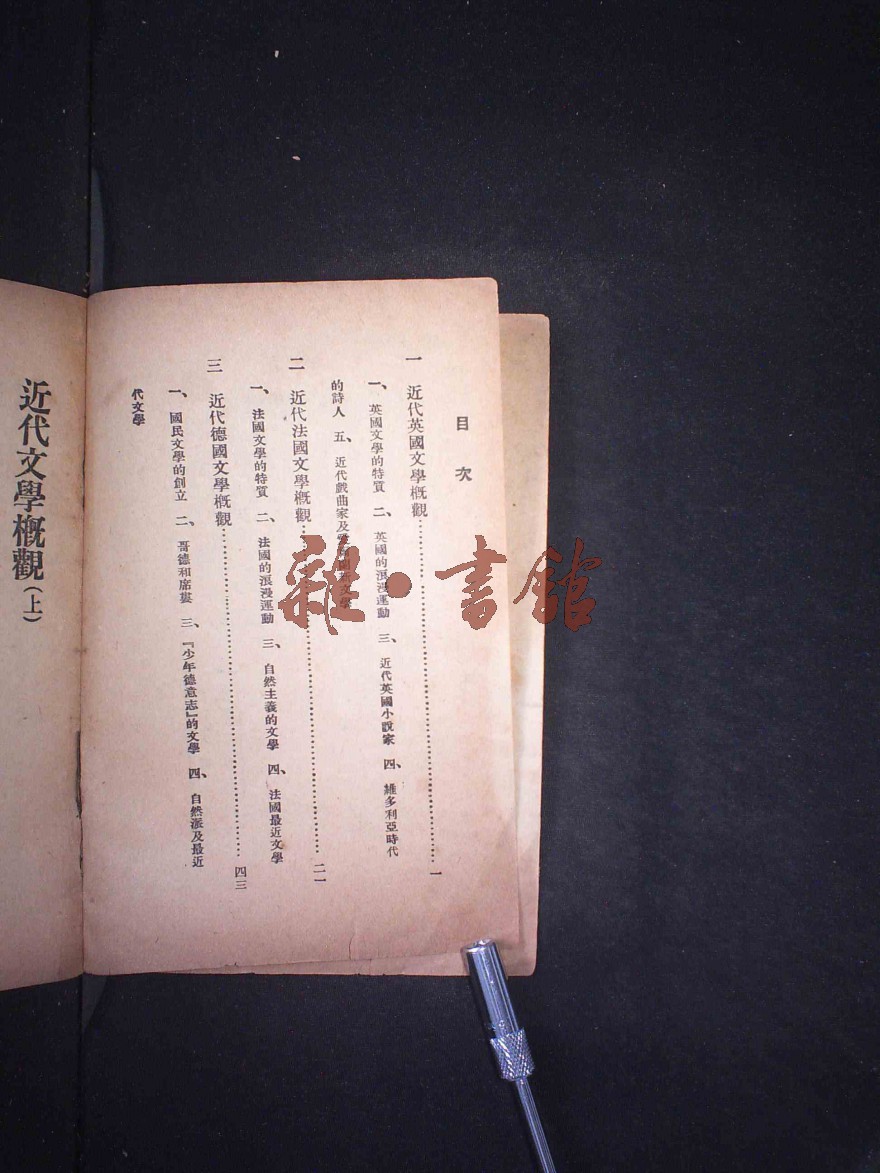 目次
一 近代英國文學概觀……一
一、英國文學的特質 二、英國的浪漫運動 三、近代英國小說家 四、維多利亞時代
的詩人 五、近代戲曲家及愛爾蘭新文學
二 近代法國文學概觀……二一
一、法國文學的特質 二、法國的浪漫運動 三、自然主義的文學 四、法國最近文學
三 近代德國文學概觀……四三
一、國民文學的創立 二、哥德和席婁 三、『少年德意志』的文學 四、自然派及最近
代文學
近代文學概觀(上)
雜·書館